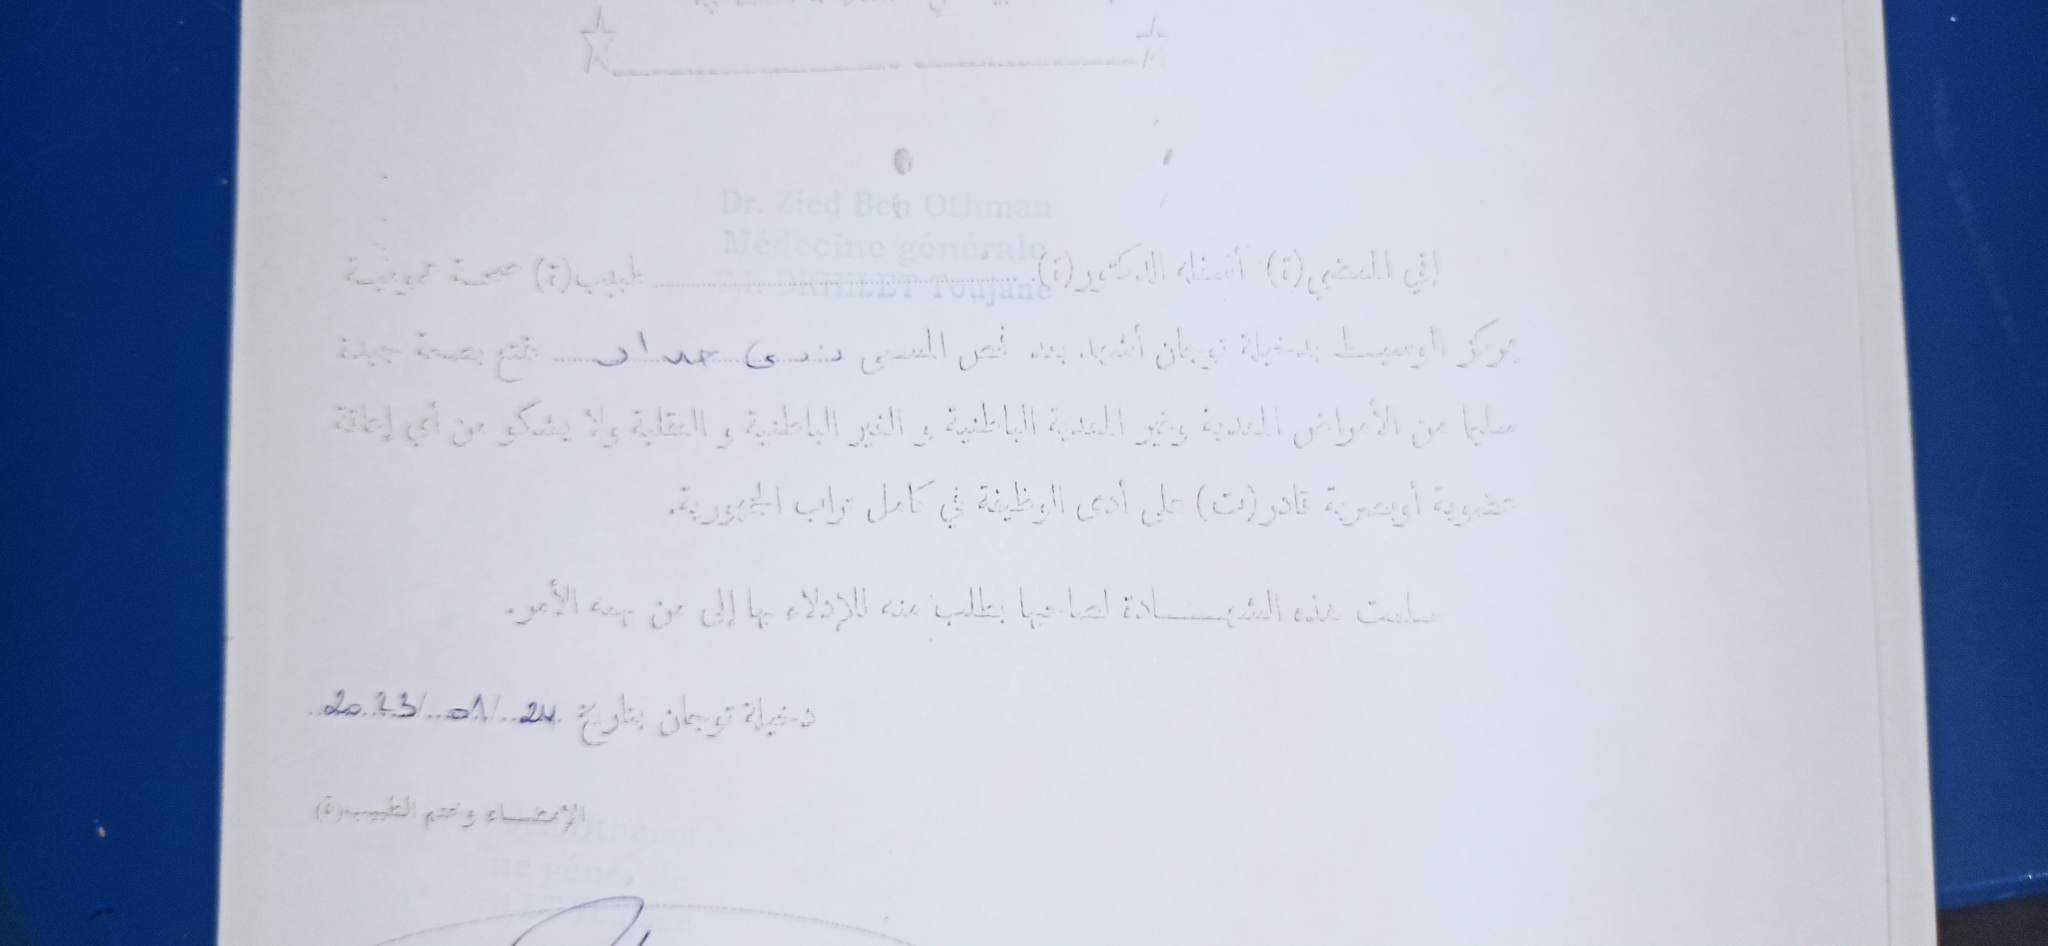 Dr. Zied Ben Othman
Médecine générale
DKHILET Toujane
إني الممضي(ة) أسفله الدكتور(ة) طبيب(ة) صحة عمومية
بمركز الوسيط بدخيلة توجان أشهد بعد فحص المسمى حداد تمتع بصحة جيدة
سليما من الأمراض المعدية وغير المعدية الباطنية و الغير الباطنية و العقلية ولا يشكو من أي إعاقة
عضوية أوبصرية قادر(ت) على أدى الوظيفة في كامل تراب الجمهورية.
سلمت هذه الشهـــادة لصاحبها بطلب منه للإدلاء بها إلى من يهمه الأمر.
دخيلة توجان بتاريخ 24/01/2023
الإمضــاء وختم الطبيب(ة)